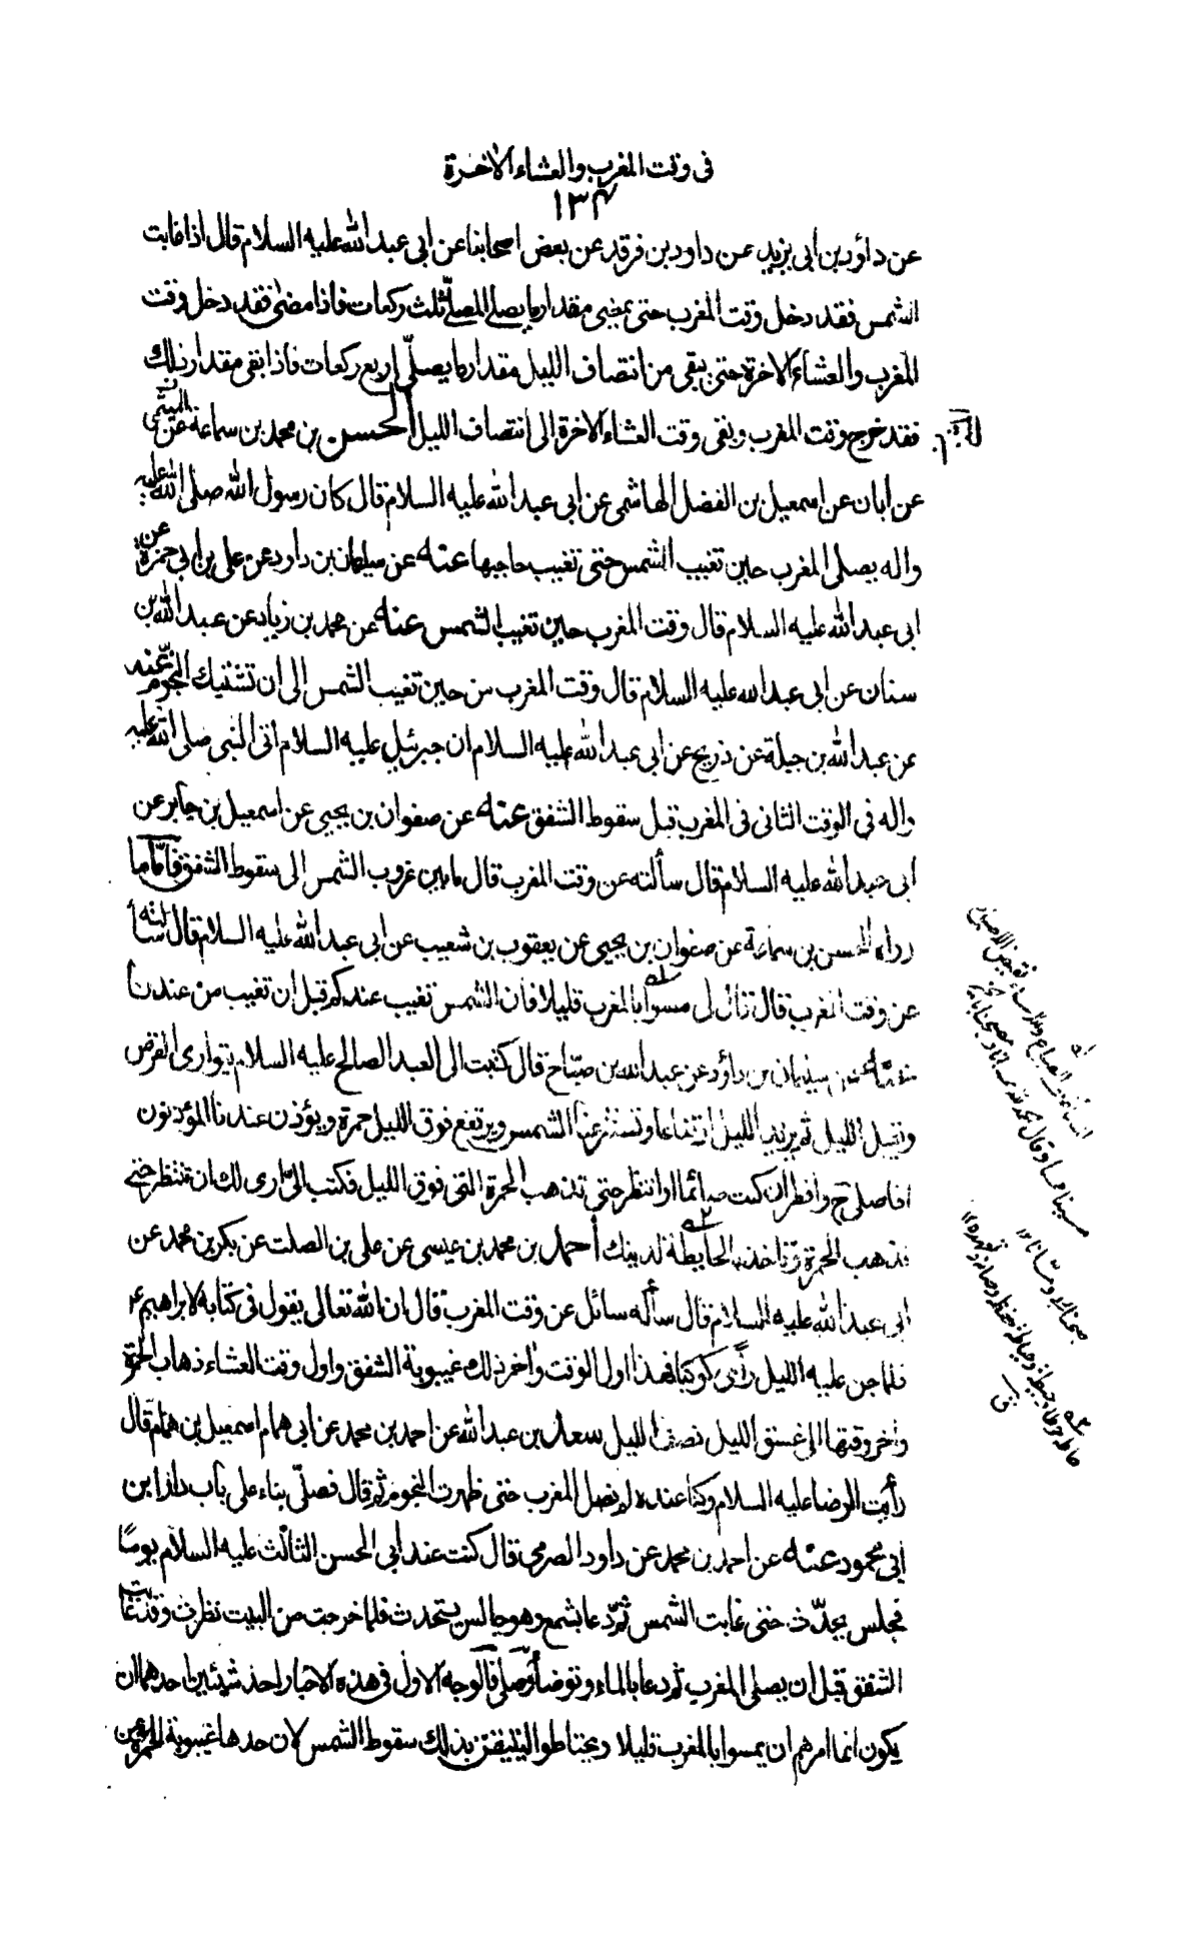 فى وقت المغرب والعشاء الاخرة
١٣٤
عن داؤد بن ابى يزيد عن داود بن فرقد عن بعض اصحابنا عن ابى عبد الله عليه السلام قال اذا غابت
الشمس فقد دخل وقت المغرب حتى يمضى مقدار ما يصلى المصلى ثلث ركعات فاذا مضى فقد دخل وقت
المغرب والعشاء الاخرة حتى يبقى من انتصاف الليل مقدار ما يصلّى اربع ركعات فاذا بقى مقدار ذلك
فقد خرج وقت المغرب وبقى وقت العشاء الاخرة الى انتصاف الليل الحسن بن محمد بن سماعة عن الميثمى
عن ابان عن اسمعيل بن الفضل الهاشمى عن ابى عبد الله عليه السلام قال كان رسول الله صلى الله عليه
واله يصلى المغرب حين تغيب الشمس حتى تغيب حاجبها عنه عن سليمان بن داود عن على بن ابى حمزة عن
ابى عبد الله عليه السلام قال وقت المغرب حين تغيب الشمس عنه عن محمد بن زياد عن عبد الله بن
سنان عن ابى عبد الله عليه السلام قال وقت المغرب من حين تغيب الشمس الى ان تشتبك النجوم عنه
عن عبد الله بن جبلة عن ذريح عن ابى عبد الله عليه السلام ان جبرئيل عليه السلام اتى النبى صلى الله عليه
واله فى الوقت الثانى فى المغرب قبل سقوط الشفق عنه عن صفوان بن يحيى عن اسمعيل بن جابر عن
ابى عبد الله عليه السلام قال سألته عن وقت المغرب قال ما بين غروب الشمس الى سقوط الشفق فامّا ما
رواه الحسن بن سماعة عن صفوان بن يحيى عن يعقوب بن شعيب عن ابى عبد الله عليه السلام قال سألته
عن وقت المغرب قال قال لى مسوا بالمغرب قليلا فان الشمس تغيب عندكم قبل ان تغيب من عندنا
عنه عن سليمان بن داؤد عن عبد الله بن صبّاح قال كتبت الى العبد الصالح عليه السلام يتوارى القرص
ويقبل الليل ثم يزيد الليل ارتفاعا وتستتر عنا الشمس ويرتفع فوق الليل حمرة ويؤذن عندنا المؤذنون
افاصلى ح وافطر ان كنت صائما او انتظر حتى تذهب الحمرة التى فوق الليل فكتب الىّ ارى لك ان تنتظر حتى
تذهب الحمرة وتاخذ بالحايطة لدينك احمد بن محمد بن عيسى عن على بن الصلت عن بكر بن محمد عن
ابى عبد الله عليه السلام قال سأله سائل عن وقت المغرب قال ان الله تعالى يقول فى كتابه لابراهيم ع
فلما جن عليه الليل رأى كوكبا فهذا اول الوقت واخر ذلك غيبوبة الشفق واول وقت العشاء ذهاب الحمرة
واخر وقتها الى غسق الليل نصف الليل سعد بن عبد الله عن احمد بن محمد عن ابى همام اسمعيل بن همام قال
رأيت الرضا عليه السلام وكنا عنده لم نصل المغرب حتى ظهرت النجوم ثم قال فصلّى بناء على باب دار ابن
ابى محمود عنه عن احمد بن محمد عن داود الصرمى قال كنت عند ابى الحسن الثالث عليه السلام يومًا
فجلس يحدّث حتى غابت الشمس ثم دعا بشمع وهو جالس يتحدث فلما خرجت من البيت نظرت وقد غاب
الشفق قبل ان يصلى المغرب ثم دعا بالماء وتوضأ وصلى فالوجه الاول فى هذه الاخبار احد شيئين احدهما ان
يكون انما امرهم ان يمسوا بالمغرب قليلا ويحتاطوا ليتيقن بذلك سقوط الشمس لان حدها غيبوبة الحمرة من